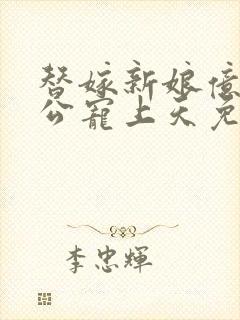 替嫁新娘億
公寵上天免
李忠輝